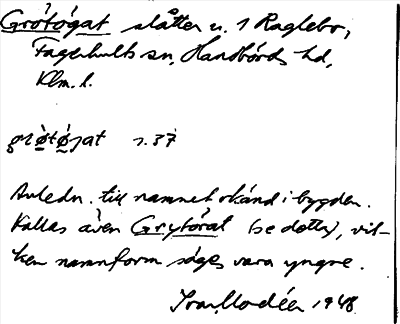 Grötögat slåtter u. 1 Raglebo,
Fagerhults sn, Handbörds hd,
Klm. l.
s. 37
Anledn. till namnet okänd i bygden.
Kallas även Grytögat (se detta), vil-
ken namnform säges vara yngre.
Ivar Modéer 1948